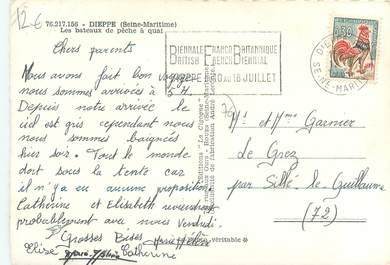 12€
76.217.156 - DIEPPE (Seine-Maritime)
Les bateaux de pêche à quai
Chers parents
Nous avons fait bon voyage
nous sommes arrivées à 5 H.
Depuis notre arrivée le
ciel est gris cependant nous
nous sommes baignées
hier soir. Tout le monde
dort sous la tente car
il n'y a eu aucune proposition
Catherine et Elisabeth reviendront
probablement avec nous Vendredi.
Grosses Bises Marie-Hélène
Elise Catherine
BIENNALE FRANCO BRITANNIQUE
BRITISH FRENCH BIENNIAL
DIEPPE 10 AU 18 JUILLET
SEINE-MARITIME
0,30
Editions "La Cigogne"
véritable
Mr et Mme Garnier
de Grez
par Sillé-le-Guillaume
(72)